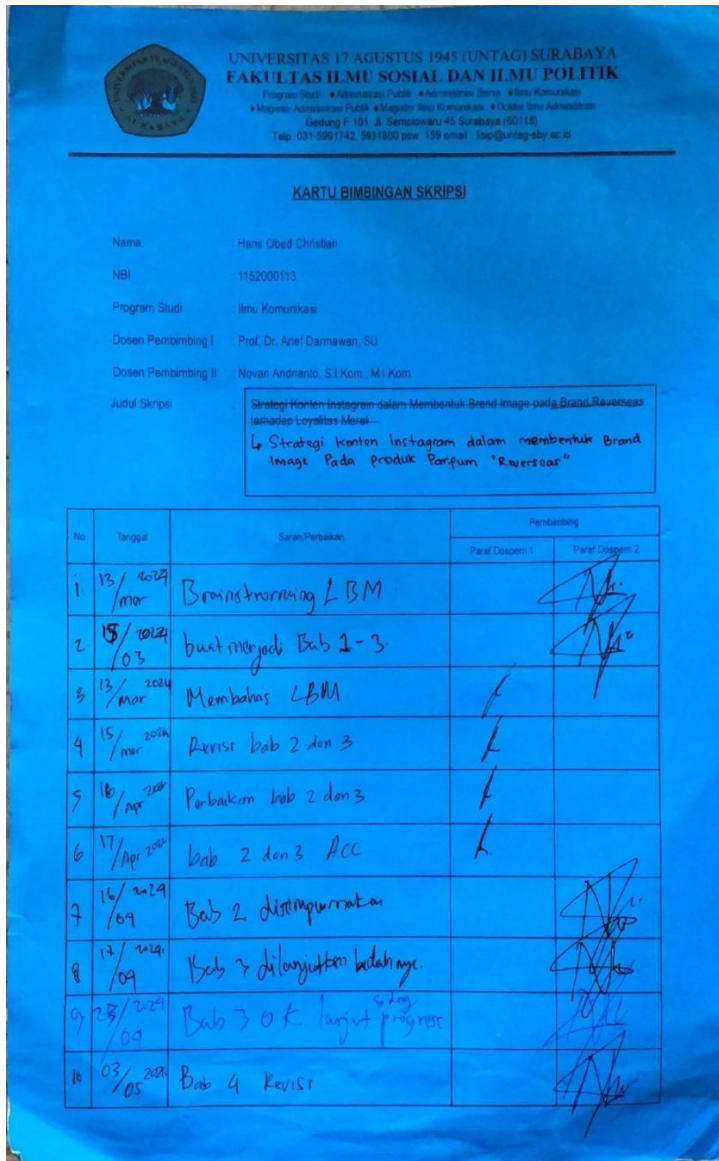 UNIVERSITAS 17 AGUSTUS 1945 (UNTAG) SURABAYA
FAKULTAS ILMU SOSIAL DAN ILMU POLITIK
Program Studi ◆Administrasi Publik ◆Administrasi Bisnis ◆Ilmu Komunikasi
◆Magister Administrasi Publik ◆Magister Ilmu Komunikasi ◆Doktor Ilmu Administrasi
Gedung F 101 Jl. Semolowaru 45 Surabaya (60118)
Telp. 031-5991742, 5931800 psw. 159 email : fisip@untag-sby.ac.id
KARTU BIMBINGAN SKRIPSI
Nama : Hans Obed Christian
NBI : 1152000113
Program Studi : Ilmu Komunikasi
Dosen Pembimbing I : Prof. Dr. Arief Darmawan, SU
Dosen Pembimbing II : Novan Andrianto, S.I.Kom., M.I.Kom
Judul Skripsi : Strategi Konten Instagram dalam Membentuk Brand Image pada Brand Reverseas
terhadap Loyalitas Merek
↳ Strategi Konten Instagram dalam membentuk Brand
Image Pada Produk Parfum "Reverseas"
No Tanggal Saran/Perbaikan Pembimbing
Paraf Dospem 1 Paraf Dospem 2
1 13/mar 2024 Brainstrorming LBM
2 15/03 2024 buat menjadi Bab 1-3.
3 13/mar 2024 Membahas LBM
4 15/mar 2024 Revisi bab 2 dan 3
5 16/Apr 2024 Perbaikan bab 2 dan 3
6 17/Apr 2024 bab 2 dan 3 ACC
7 16/04 2024 Bab 2 disempurnakan
8 17/04 2024. Bab 3 dilanjutkan
9 /04 2024 Bab 3 OK lanjut progress
10 03/05 2024 Bab 4 Revisi